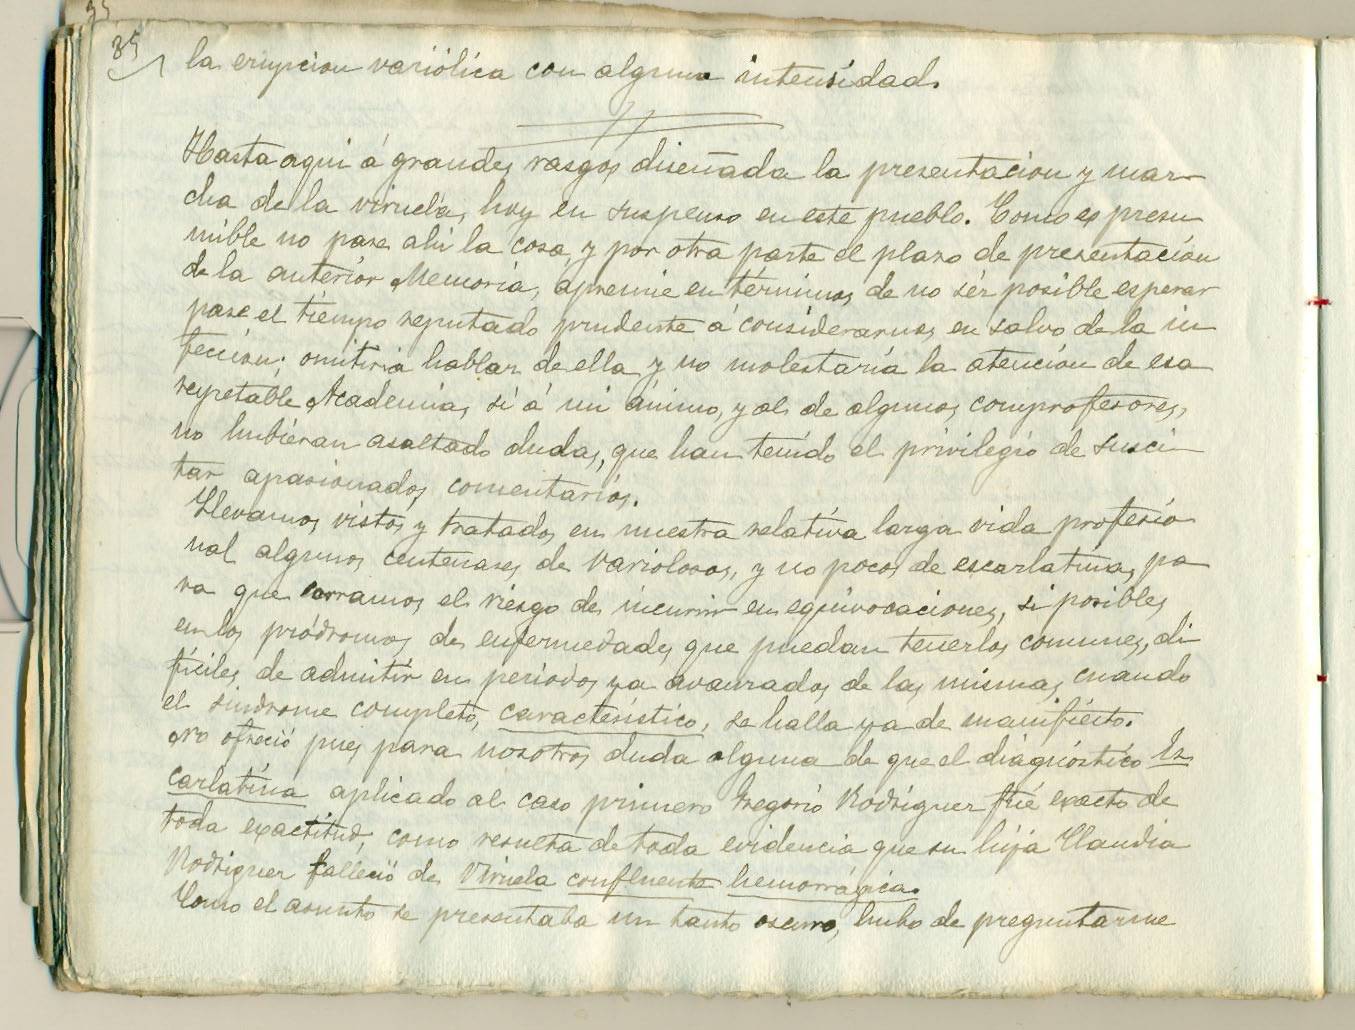 35
la erupcion variólica con alguna intensidad.
Hasta aqui á grandes rasgos diseñada la presentacion y mar-
cha de la viruela, hoy en suspenso en este pueblo. Como es presu
mible no pase ahi la cosa, y por otra parte el plazo de presentación
de la anterior Memoria, apremie en términos de no ser posible esperar
pase el tiempo reputado prudente á considerarnos en salvo de la in
fección; omitiria hablar de ella y no molestaría la atención de esa
respetable Academia, si á mi ánimo, y al de algunos comprofesores,
no hubieran asaltado dudas, que han tenido el privilegio de susci
tar apasionados comentarios.
Llevamos vistos y tratados en nuestra relativa larga vida profesio
nal algunos centenares de variolosos, y no pocos de escarlatina, pa
ra que corramos el riesgo de incurrir en equivocaciones, si posibles
en los pródromos de enfermedades que puedan tenerlos comunes, di
fíciles de admitir en periodos ya avanzados de las mismas, cuando
el sindrome completo, característico, se halla ya de manifiesto.
No ofreció pues para nosotros duda alguna de que el diagnóstico Es
carlatina aplicado al caso primero Gregorio Rodriguez fué exacto de
toda exactitud, como resulta de toda evidencia que su hija Claudia
Rodriguez falleció de Viruela confluente hemorrágica.
Como el asunto se presentaba un tanto oscuro, hubo de preguntarme